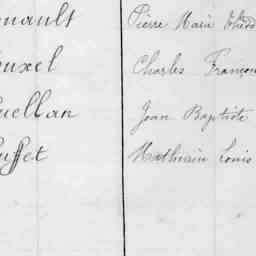 nault Pierre Marie Théod
ouxel Charles Françoi
uellan Jean Baptiste
uffet Mathurin Louis